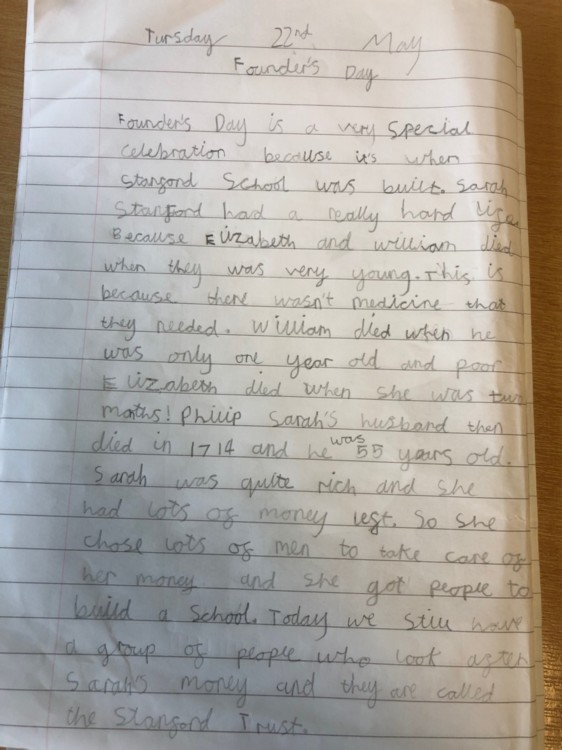 Tursday 22nd May
Founder's Day
Founder's Day is a very special
celebration because it's when
Stanford School was built. Sarah
Stanford had a really hard life.
Because Elizabeth and william died
when they was very young. This is
because there wasn't medicine that
they needed. William died when he
was only one year old and poor
Elizabeth died when she was two
moths! Philip Sarah's husband then
died in 1714 and he was 55 years old.
Sarah was quite rich and she
had lots of money left. So she
chose lots of men to take care of
her money and she got people to
build a school. Today we still have
a group of people who look after
Sarah's money and they are called
the Stanford Trust.